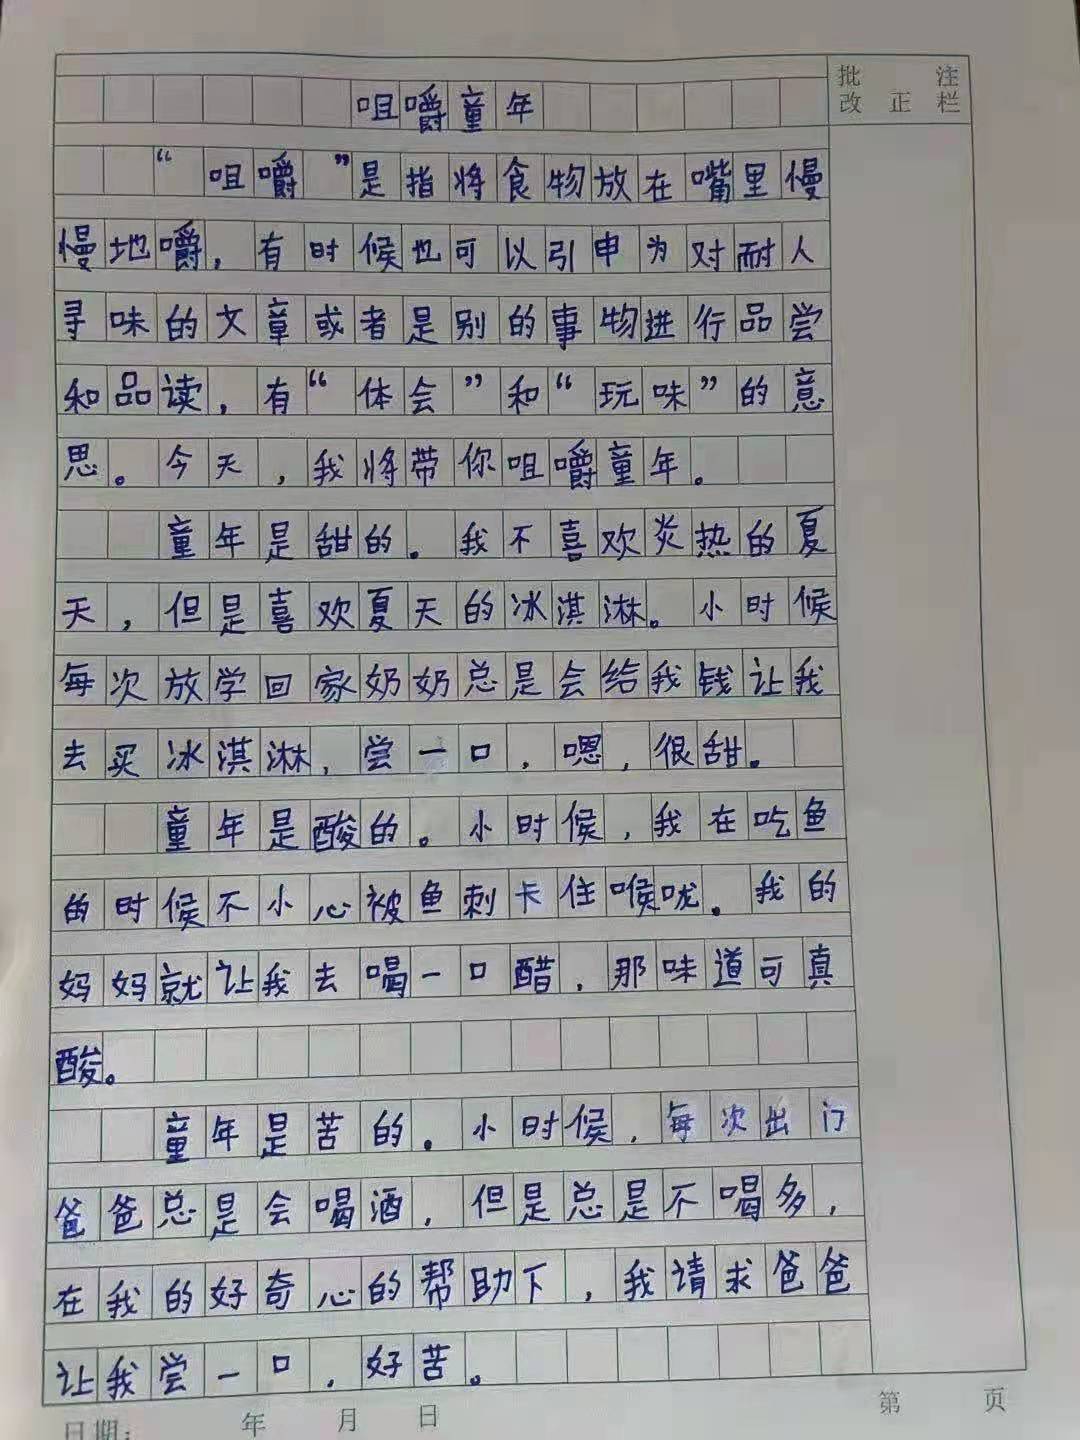 批 注
改 正 栏
咀嚼童年
“咀嚼”是指将食物放在嘴里慢
慢地嚼，有时候也可以引申为对耐人
寻味的文章或者是别的事物进行品尝
和品读，有“体会”和“玩味”的意
思。今天，我将带你咀嚼童年。
童年是甜的。我不喜欢炎热的夏
天，但是喜欢夏天的冰淇淋。小时候
每次放学回家奶奶总是会给我钱让我
去买冰淇淋，尝一口，嗯，很甜。
童年是酸的。小时候，我在吃鱼
的时候不小心被鱼刺卡住喉咙。我的
妈妈就让我去喝一口醋，那味道可真
酸。
童年是苦的。小时候，每次出门
爸爸总是会喝酒，但是总是不喝多，
在我的好奇心的帮助下，我请求爸爸
让我尝一口，好苦。
第 页
日期： 年 月 日